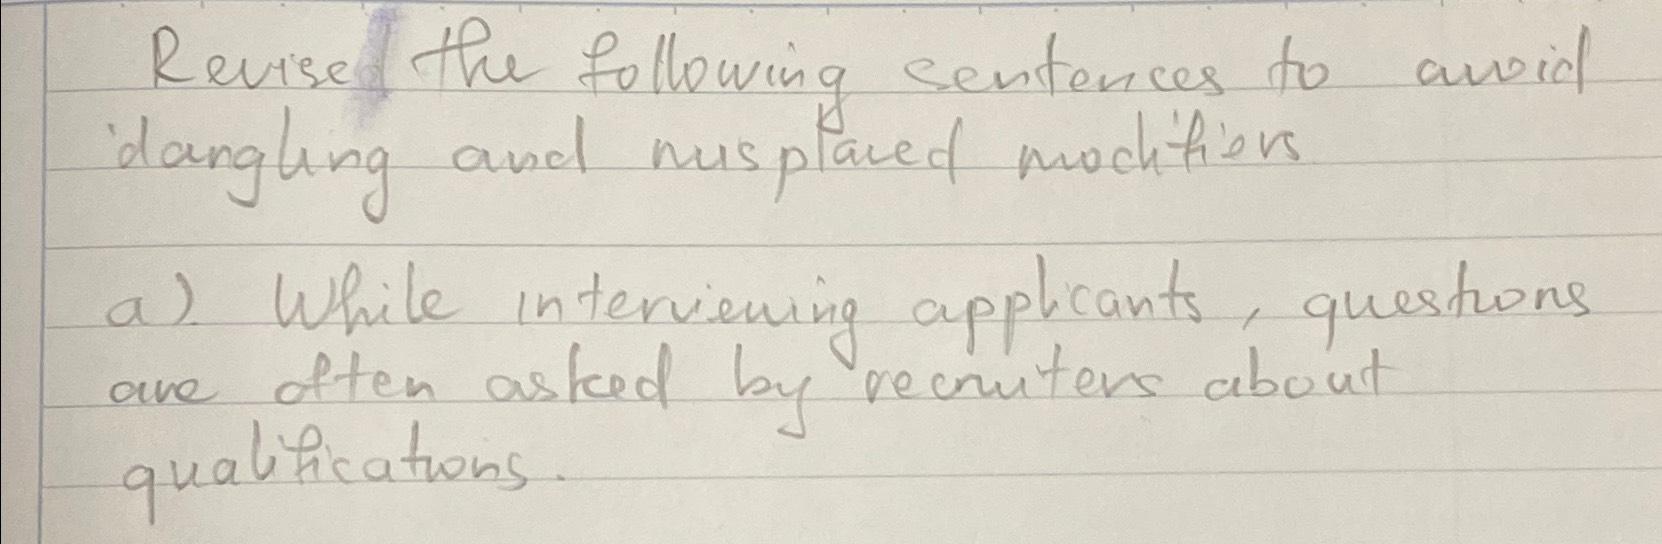 Revise the following sentences to avoid
dangling and misplaced modifiers
a) While interviewing applicants, questions
are often asked by recruiters about
qualifications.